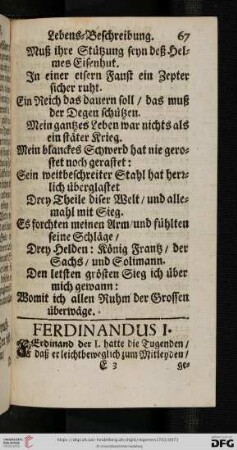 Lebens/Beschreibung. 67
Muß ihre Stützung seyn deß Hel-
mes Eisenhut.
In einer eisern Faust ein Zepter
sicher ruht.
Ein Reich das dauern soll / das muß
der Degen schützen.
Mein gantzes Leben war nichts als
ein stäter Krieg.
Mein blanckes Schwerd hat nie gero-
stet noch gerastet:
Sein weitbeschreiter Stahl hat herz-
lich überglastet
Drey Theile diser Welt / und alle-
mahl mit Sieg.
Es forchten meinen Arm / und fühlten
seine Schläge /
Drey Helden: König Frantz / der
Sachs / und Solimann.
Den letsten grösten Sieg ich über
mich gewann:
Womit ich allen Ruhm der Grossen
überwäge.
FERDINANDUS I.
FErdinand der I. hatte die Tugenden /
daß er leichtbeweglich zum Mitleyden /
E 3 ge-
UNIVERSITÄTS-BIBLIOTHEK HEIDELBERG
DFG